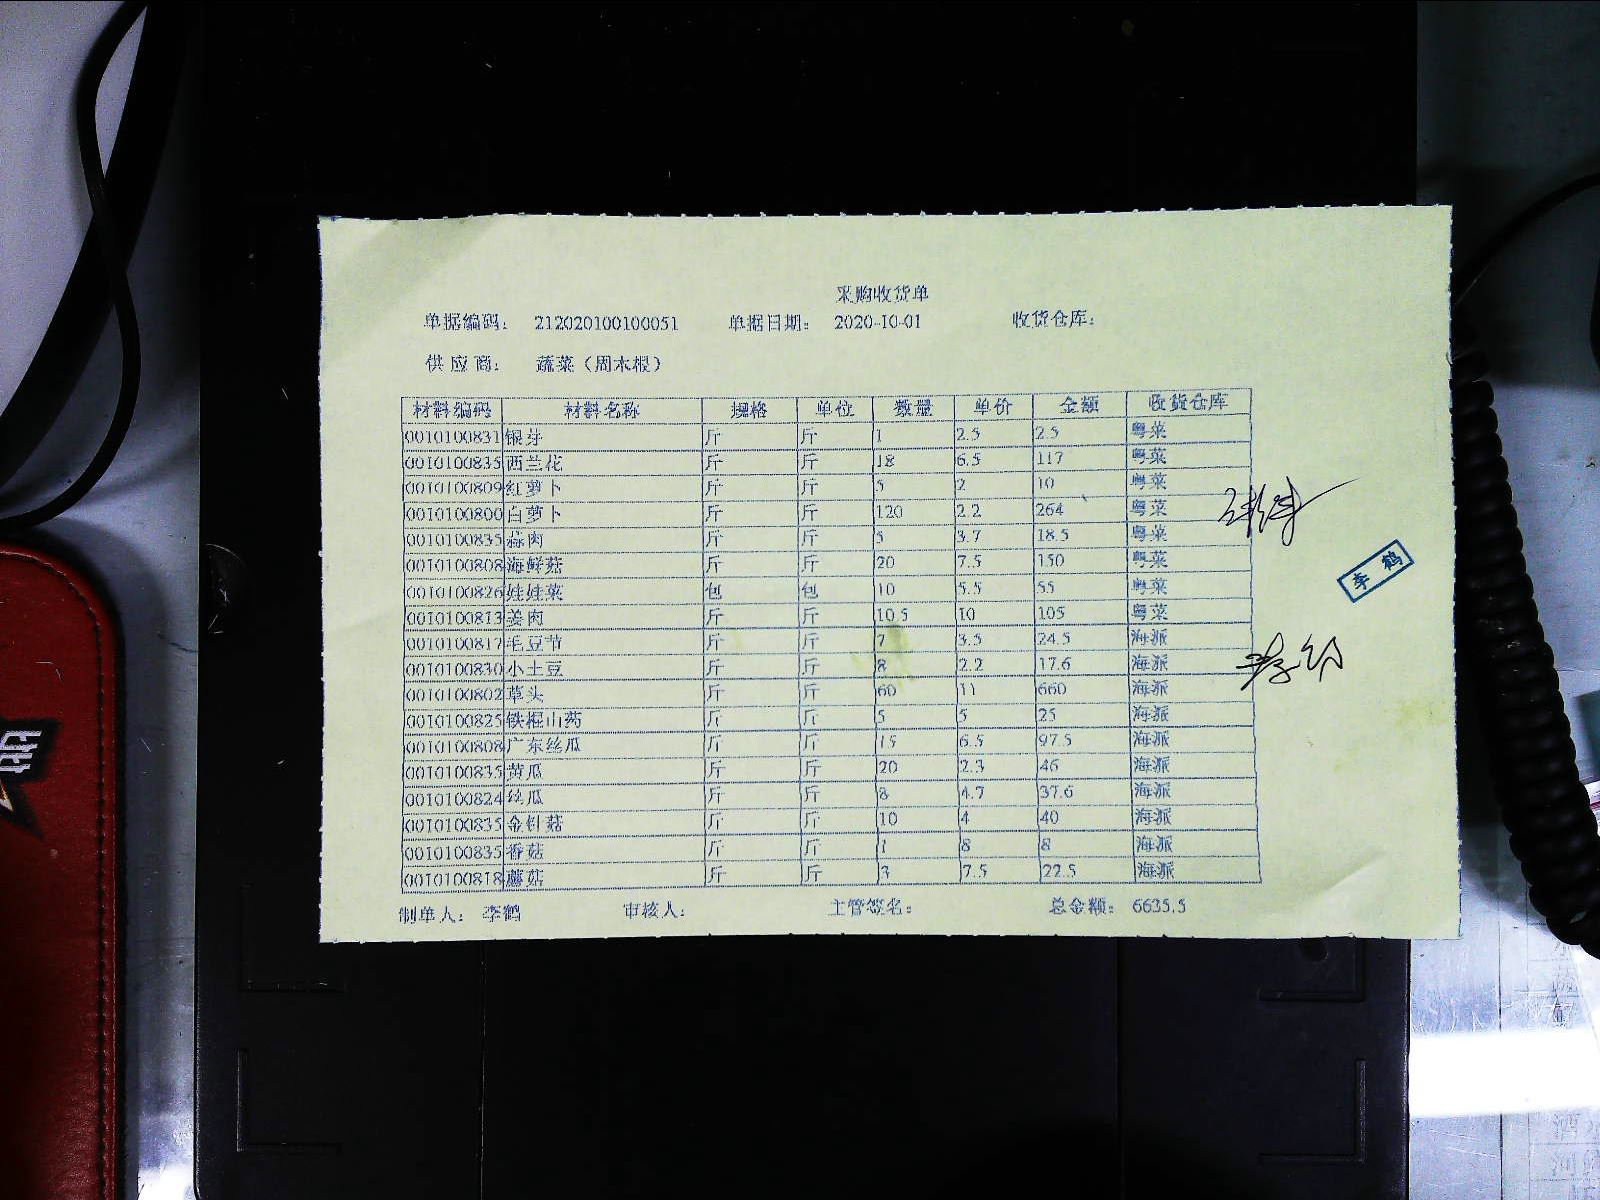 采购收货单
单据编码： 212020100100051 单据日期： 2020-10-01 收货仓库：
供应商： 蔬菜（周木根）
材料编码 材料名称 规格 单位 数量 单价 金额 收货仓库
0010100831 银芽 斤 斤 1 2.5 2.5 粤菜
0010100835 西兰花 斤 斤 18 6.5 117 粤菜
0010100809 红萝卜 斤 斤 5 2 10 粤菜
0010100800 白萝卜 斤 斤 120 2.2 264 粤菜
0010100835 蒜肉 斤 斤 5 3.7 18.5 粤菜
0010100808 海鲜菇 斤 斤 20 7.5 150 粤菜
0010100826 娃娃菜 包 包 10 5.5 55 粤菜
0010100813 姜肉 斤 斤 10.5 10 105 粤菜
0010100817 毛豆节 斤 斤 7 3.5 24.5 海派
0010100830 小土豆 斤 斤 8 2.2 17.6 海派
0010100802 草头 斤 斤 60 11 660 海派
0010100825 铁棍山药 斤 斤 5 5 25 海派
0010100808 广东丝瓜 斤 斤 15 6.5 97.5 海派
0010100835 黄瓜 斤 斤 20 2.3 46 海派
0010100824 丝瓜 斤 斤 8 4.7 37.6 海派
0010100835 金针菇 斤 斤 10 4 40 海派
0010100835 香菇 斤 斤 1 8 8 海派
0010100818 蘑菇 斤 斤 3 7.5 22.5 海派
制单人： 李鹤 审核人： 主管签名： 总金额： 6635.5
李鹤